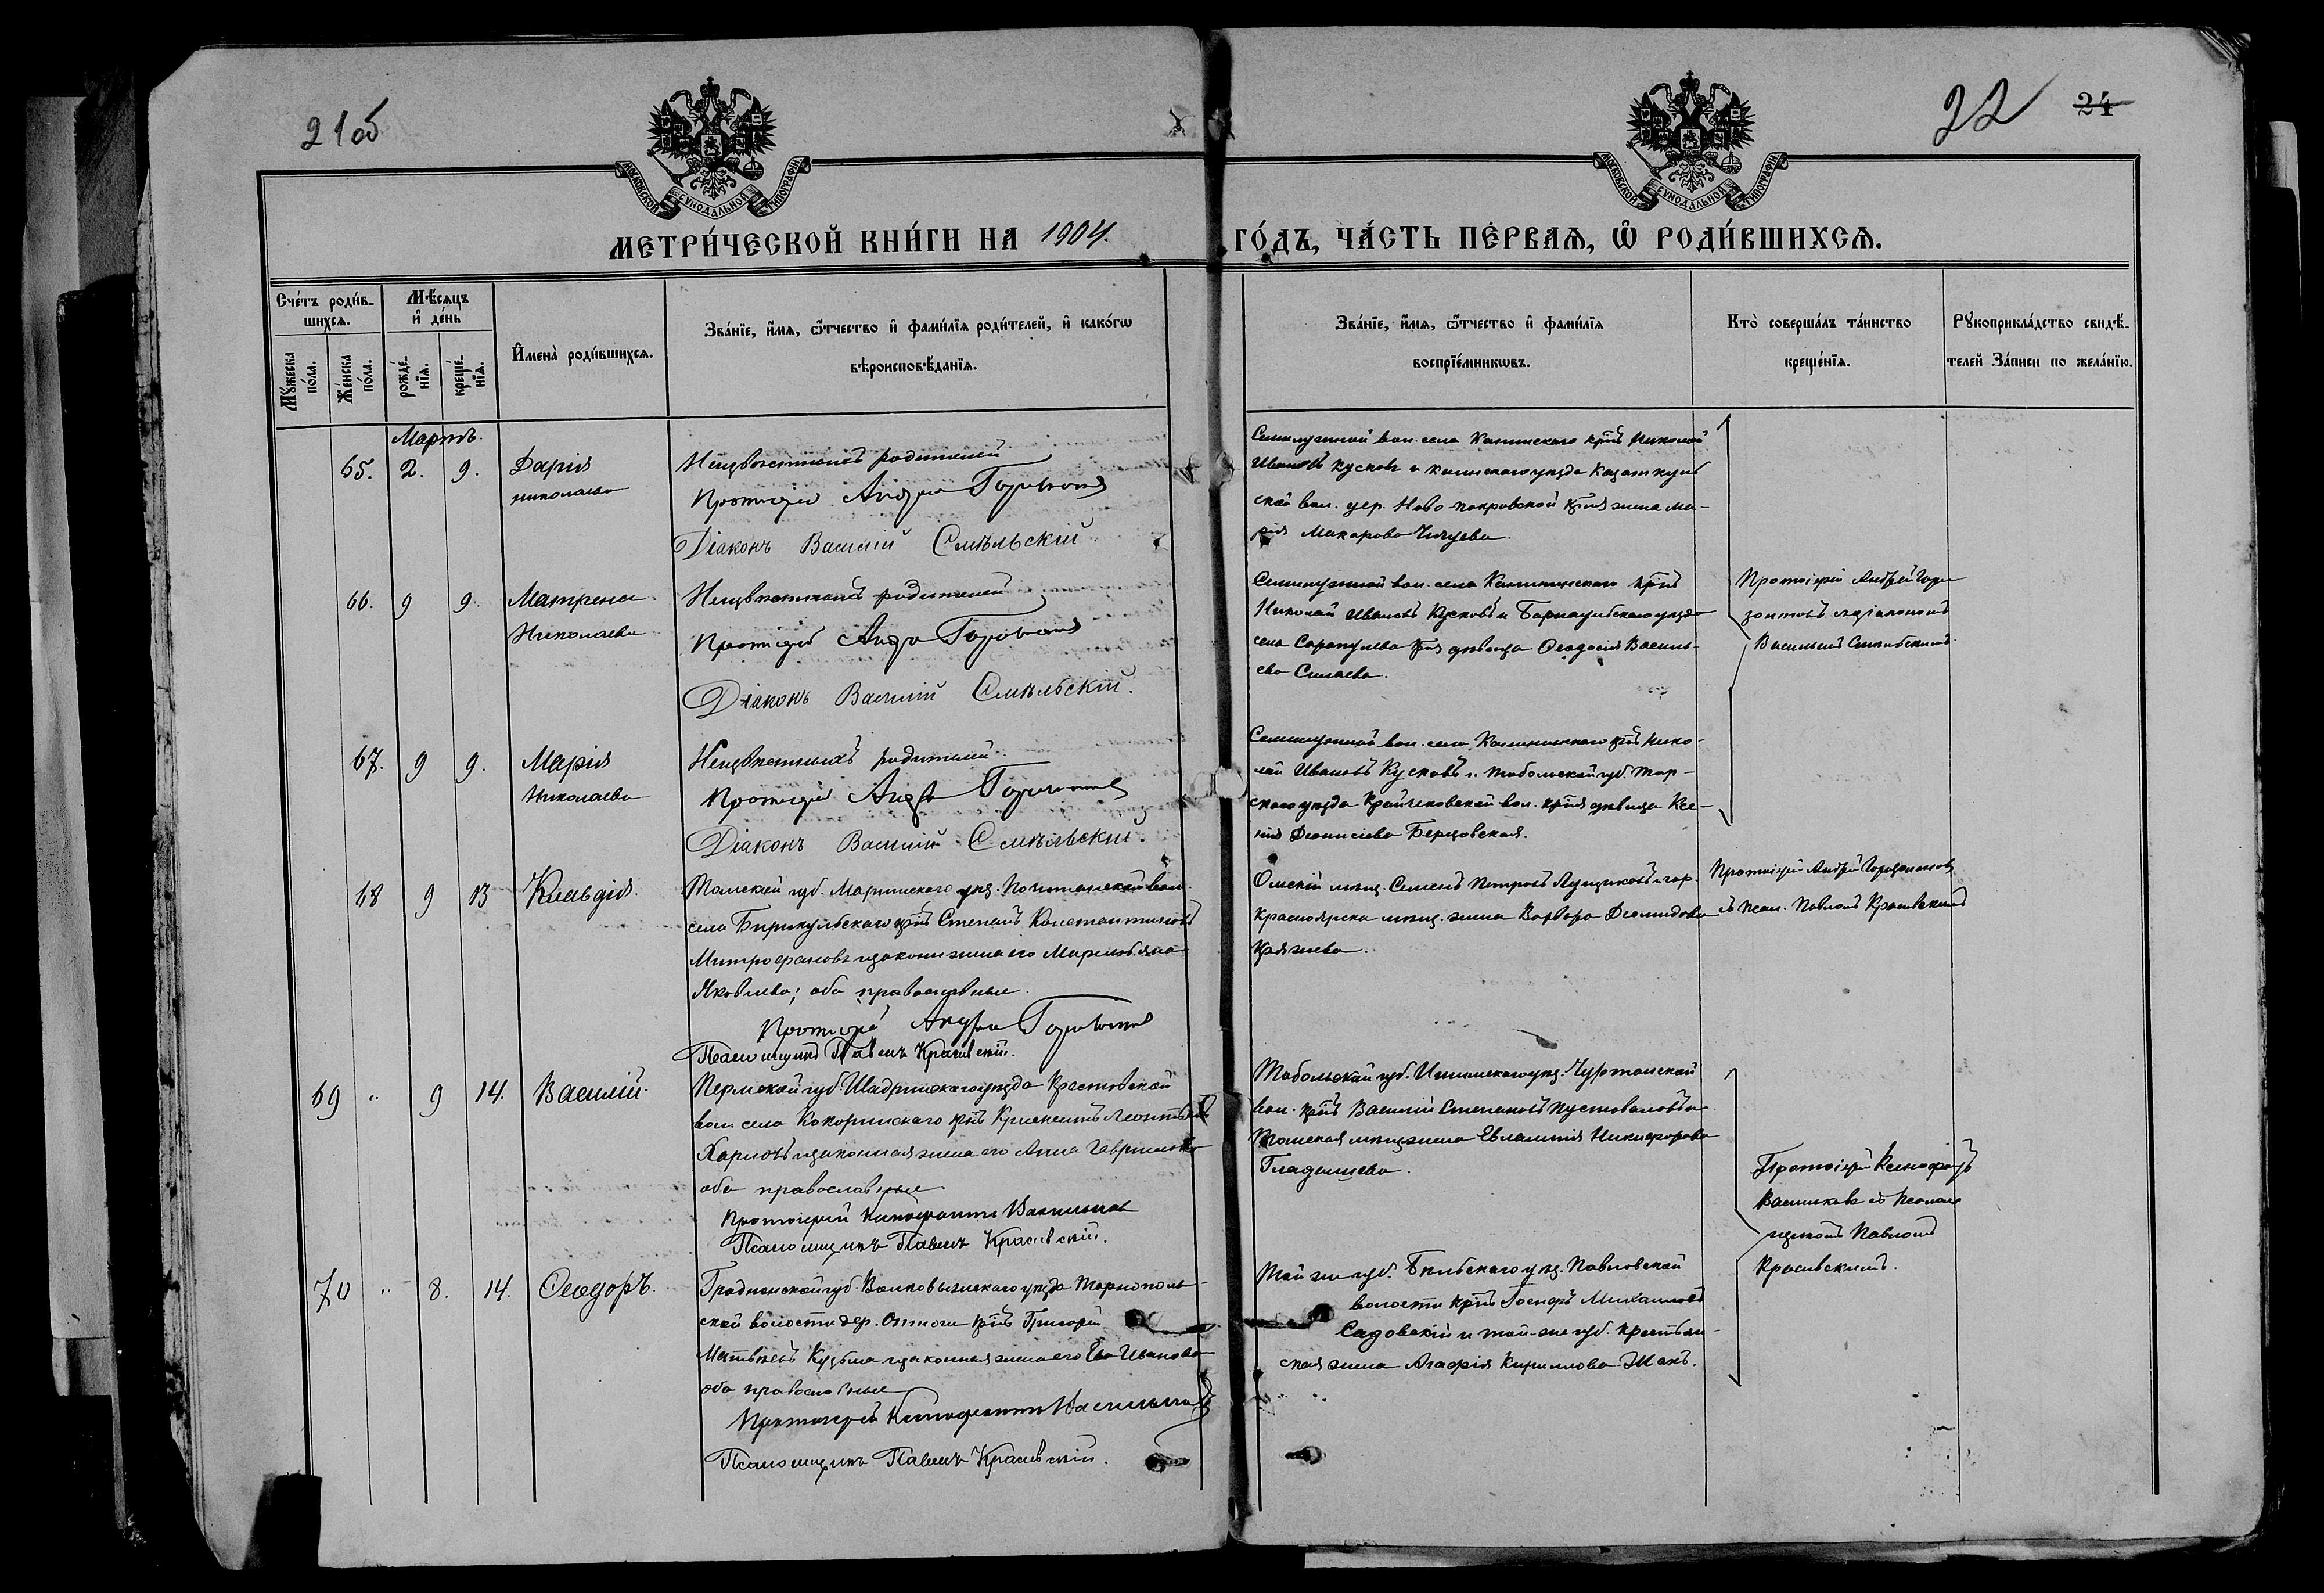 21об
22 24
МОСКОВСКОЙ СѴНОДАЛЬНОЙ ТИПОГРАФІИ
МОСКОВСКОЙ СѴНОДАЛЬНОЙ ТИПОГРАФІИ
МЕТРИ́ЧЕСКОЙ КНИ́ГИ НА 1904. ГО́ДЪ, ЧА́СТЬ ПЕ́РВАѦ, Ѽ РОДИ́ВШИХСѦ.
Сче́тъ роди́в-
шихсѧ.
Мꙋжеска по́ла.
Же́нска по́ла.
Мѣ́сѧцъ
и҆ де́нь
рожде́-
нїѧ.
креще́-
нїѧ.
И҆мена̀ роди́вшихсѧ.
Зва́нїе, и҆́мѧ, ѻ҆́тчество и҆ фами́лїѧ роди́телей, и҆ како́гѡ
вѣроисповѣ́данїѧ.
Зва́нїе, и҆́мѧ, ѻ҆́тчество и҆ фами́лїѧ
воспрїе́мникѡвъ.
Кто̀ соверша́лъ та́инство
креще́нїѧ.
Рꙋкоприкла́дство свидѣ́-
телей За́писи по жела́нїю.
Мартъ.
65. 2. 9. Дарія
Николаева
Неизвѣстныхъ родителей
Протоіерей Андрей Горизонтовъ
Діаконъ Василій Смѣльскій
вол. села Каинскаго крнъ Николай
Ивановъ Кусковъ и Каинскаго уѣзда Казаткуль
ской вол. дер. Ново-покровской жена Ма-
рія Макарова
66. 9 9. Матрена
Николаева
Неизвѣстныхъ родителей
Протоіерей Андрей Горизонтовъ
Діаконъ Василій Смѣльскій.
вол. села крнъ
Николай Ивановъ Кусковъ и Барнаульскаго уѣзда
села дѣвица Ѳеодосія Василь-
ева Силаева.
Протоіерей Андрей Гори
зонтовъ съ діакономъ
Василіемъ Смѣльскимъ
67. 9 9. Марія
Николаева
Неизвѣстныхъ родителей
Протоіерей Андрей Горизонтовъ
Діаконъ Василій Смѣльскій.
вол. села крнъ Нико-
лай Ивановъ Кусковъ и Тобольской губ. Тар-
скаго уѣзда вол. дѣвица Ксе-
нія Діонисіева
68 9 13 Клавдія.
Томской губ. Маріинскаго уѣз. Почитанской вол.
села Бирикульскаго крнъ Степанъ Константиновъ
Митрофановъ и законн. жена его
Яковлева; оба православные.
Протоіерей Андрей Горизонтовъ
Псаломщикъ Павелъ Красивскій.
Омскій мѣщ. Семенъ Петровъ и гор.
Красноярска мѣщ. жена Варвара Діомидова
Княжева.
Протоіерей Андрей Горизонтовъ
съ псал. Павломъ Красивскимъ
69 " 9 14. Василій.
Пермской губ. Шадринскаго уѣзда
вол. села Кокоринскаго крнъ Леонтьевъ
Харловъ и законная жена его Анна Гаврилова
оба православные
Протоіерей Ксенофонтъ Васильковъ
Псаломщикъ Павелъ Красивскій.
Тобольской губ. Ишимскаго уѣз. Чуртанской
вол. крнъ Василій Степановъ Пустоваловъ и
Томская мѣщ. жена Евлампія Никифорова
Гладышева.
Протоіерей Ксенофонтъ
Васильковъ съ псалом
щикомъ Павломъ
Красивскимъ.
70 " 8. 14. Ѳеодоръ.
Гродненской губ. Волковыскаго уѣзда Тарнополь-
ской волости дер. крнъ Григорій
Матвѣевъ Кузьма и законная жена его Ева Иванова
оба православные
Протоіерей Ксенофонтъ Васильковъ
Псаломщикъ Павелъ Красивскій.
Той же губ. Бѣльскаго уѣз. Павловской
волости крнъ Іосифъ Михаиловъ
Садовскій и той-же губ. крестьян-
ская жена Агафія Кириллова Жакъ.